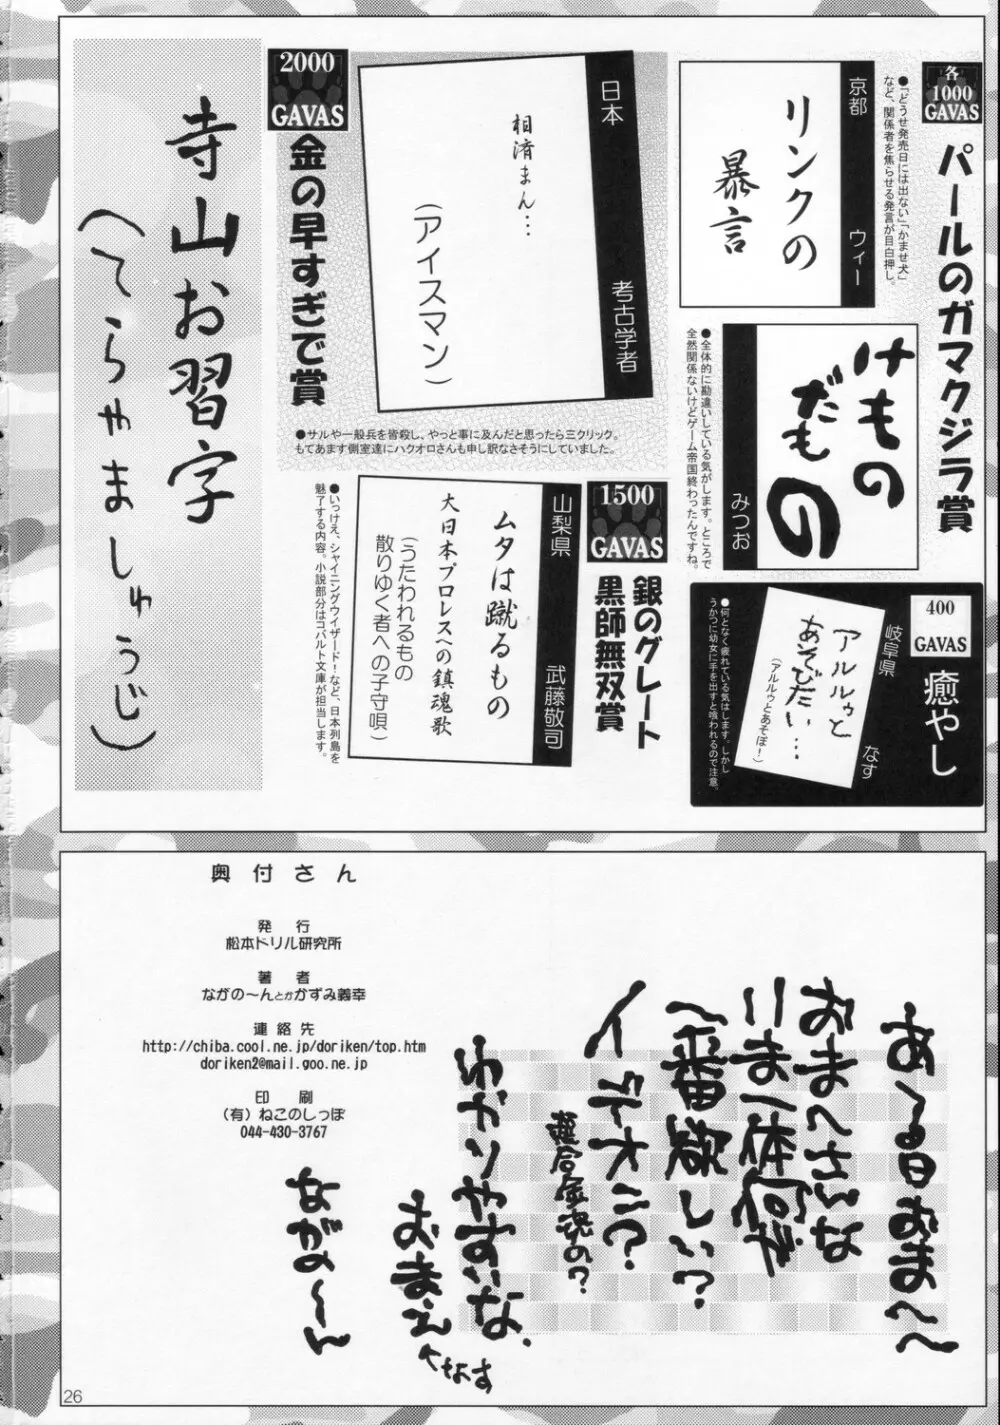 各
1000
GAVAS
パールのガマクジラ賞
京都　ウィー
リンクの
暴言
●「どうせ発売日には出ない」「かませ犬」
など、関係者を焦らせる発言が目白押し。
みつお
けもの
だもの
●全体的に勘違いしている気がします。ところで
全然関係ないけどゲーム帝国終わったんですね。
400
GAVAS
癒やし
岐阜県　なす
アルルゥと
あそびたい…
(アルルゥとあそぼ！)
●何となく疲れている気はします。しかし
うかつに幼女に手を出すと喰われるので注意。
2000
GAVAS
金の早すぎで賞
日本　考古学者
相済まん…
(アイスマン)
●サルや一般兵を皆殺し、やっと事に及んだと思ったら三クリック。
もてあます側室達にハクオロさんも申し訳なさそうにしていました。
1500
GAVAS
銀のグレート
黒師無双賞
山梨県　武藤敬司
ムタは蹴るもの
大日本プロレスへの鎮魂歌
(うたわれるもの
散りゆく者への子守唄)
●いっけえ、シャイニングウィザード！など、日本列島を
魅了する内容。小説部分はコバルト文庫が担当します。
寺山お習字
(てらやましゅうじ)
奥付さん
発行
松本ドリル研究所
著者
ながの〜んとかかずみ義幸
連絡先
http://chiba.cool.ne.jp/doriken/top.htm
doriken2@mail.goo.ne.jp
印刷
（有）ねこのしっぽ
044-430-3767
あ〜る日おま〜〜
おまへさんな
いま一体何が
一番欲しい？
イデオン？
超合金魂の？
わかりやすいな．
おまえ
なす
ながの〜ん
26